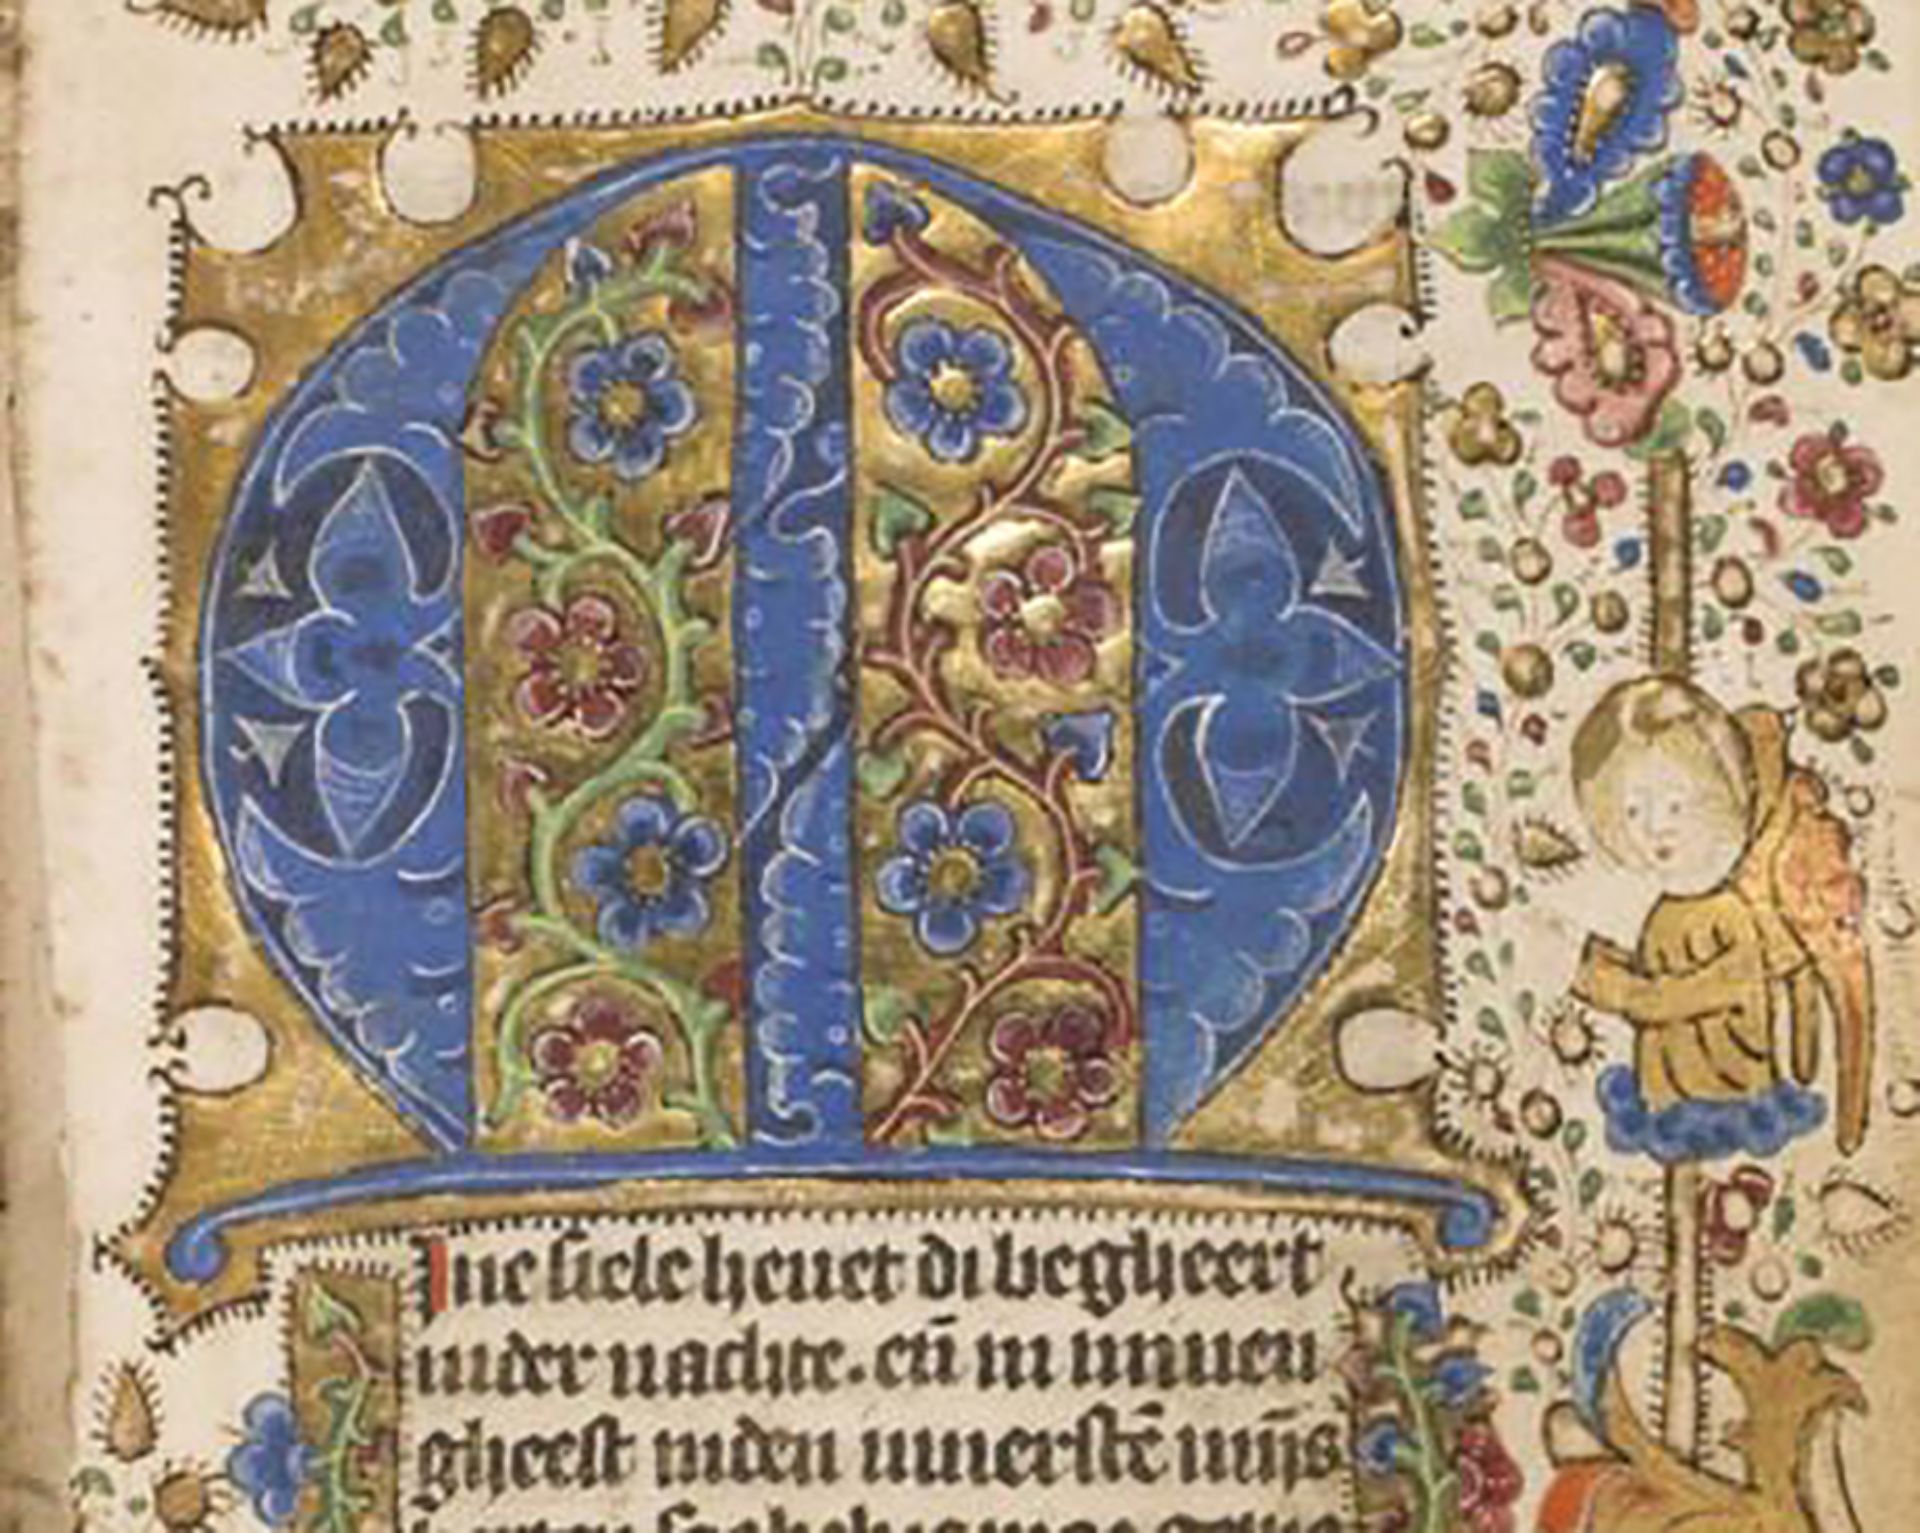 M
Ine siele heuet di begheert
inder nachte. eñ in minen
gheest inden binnerstē mijs